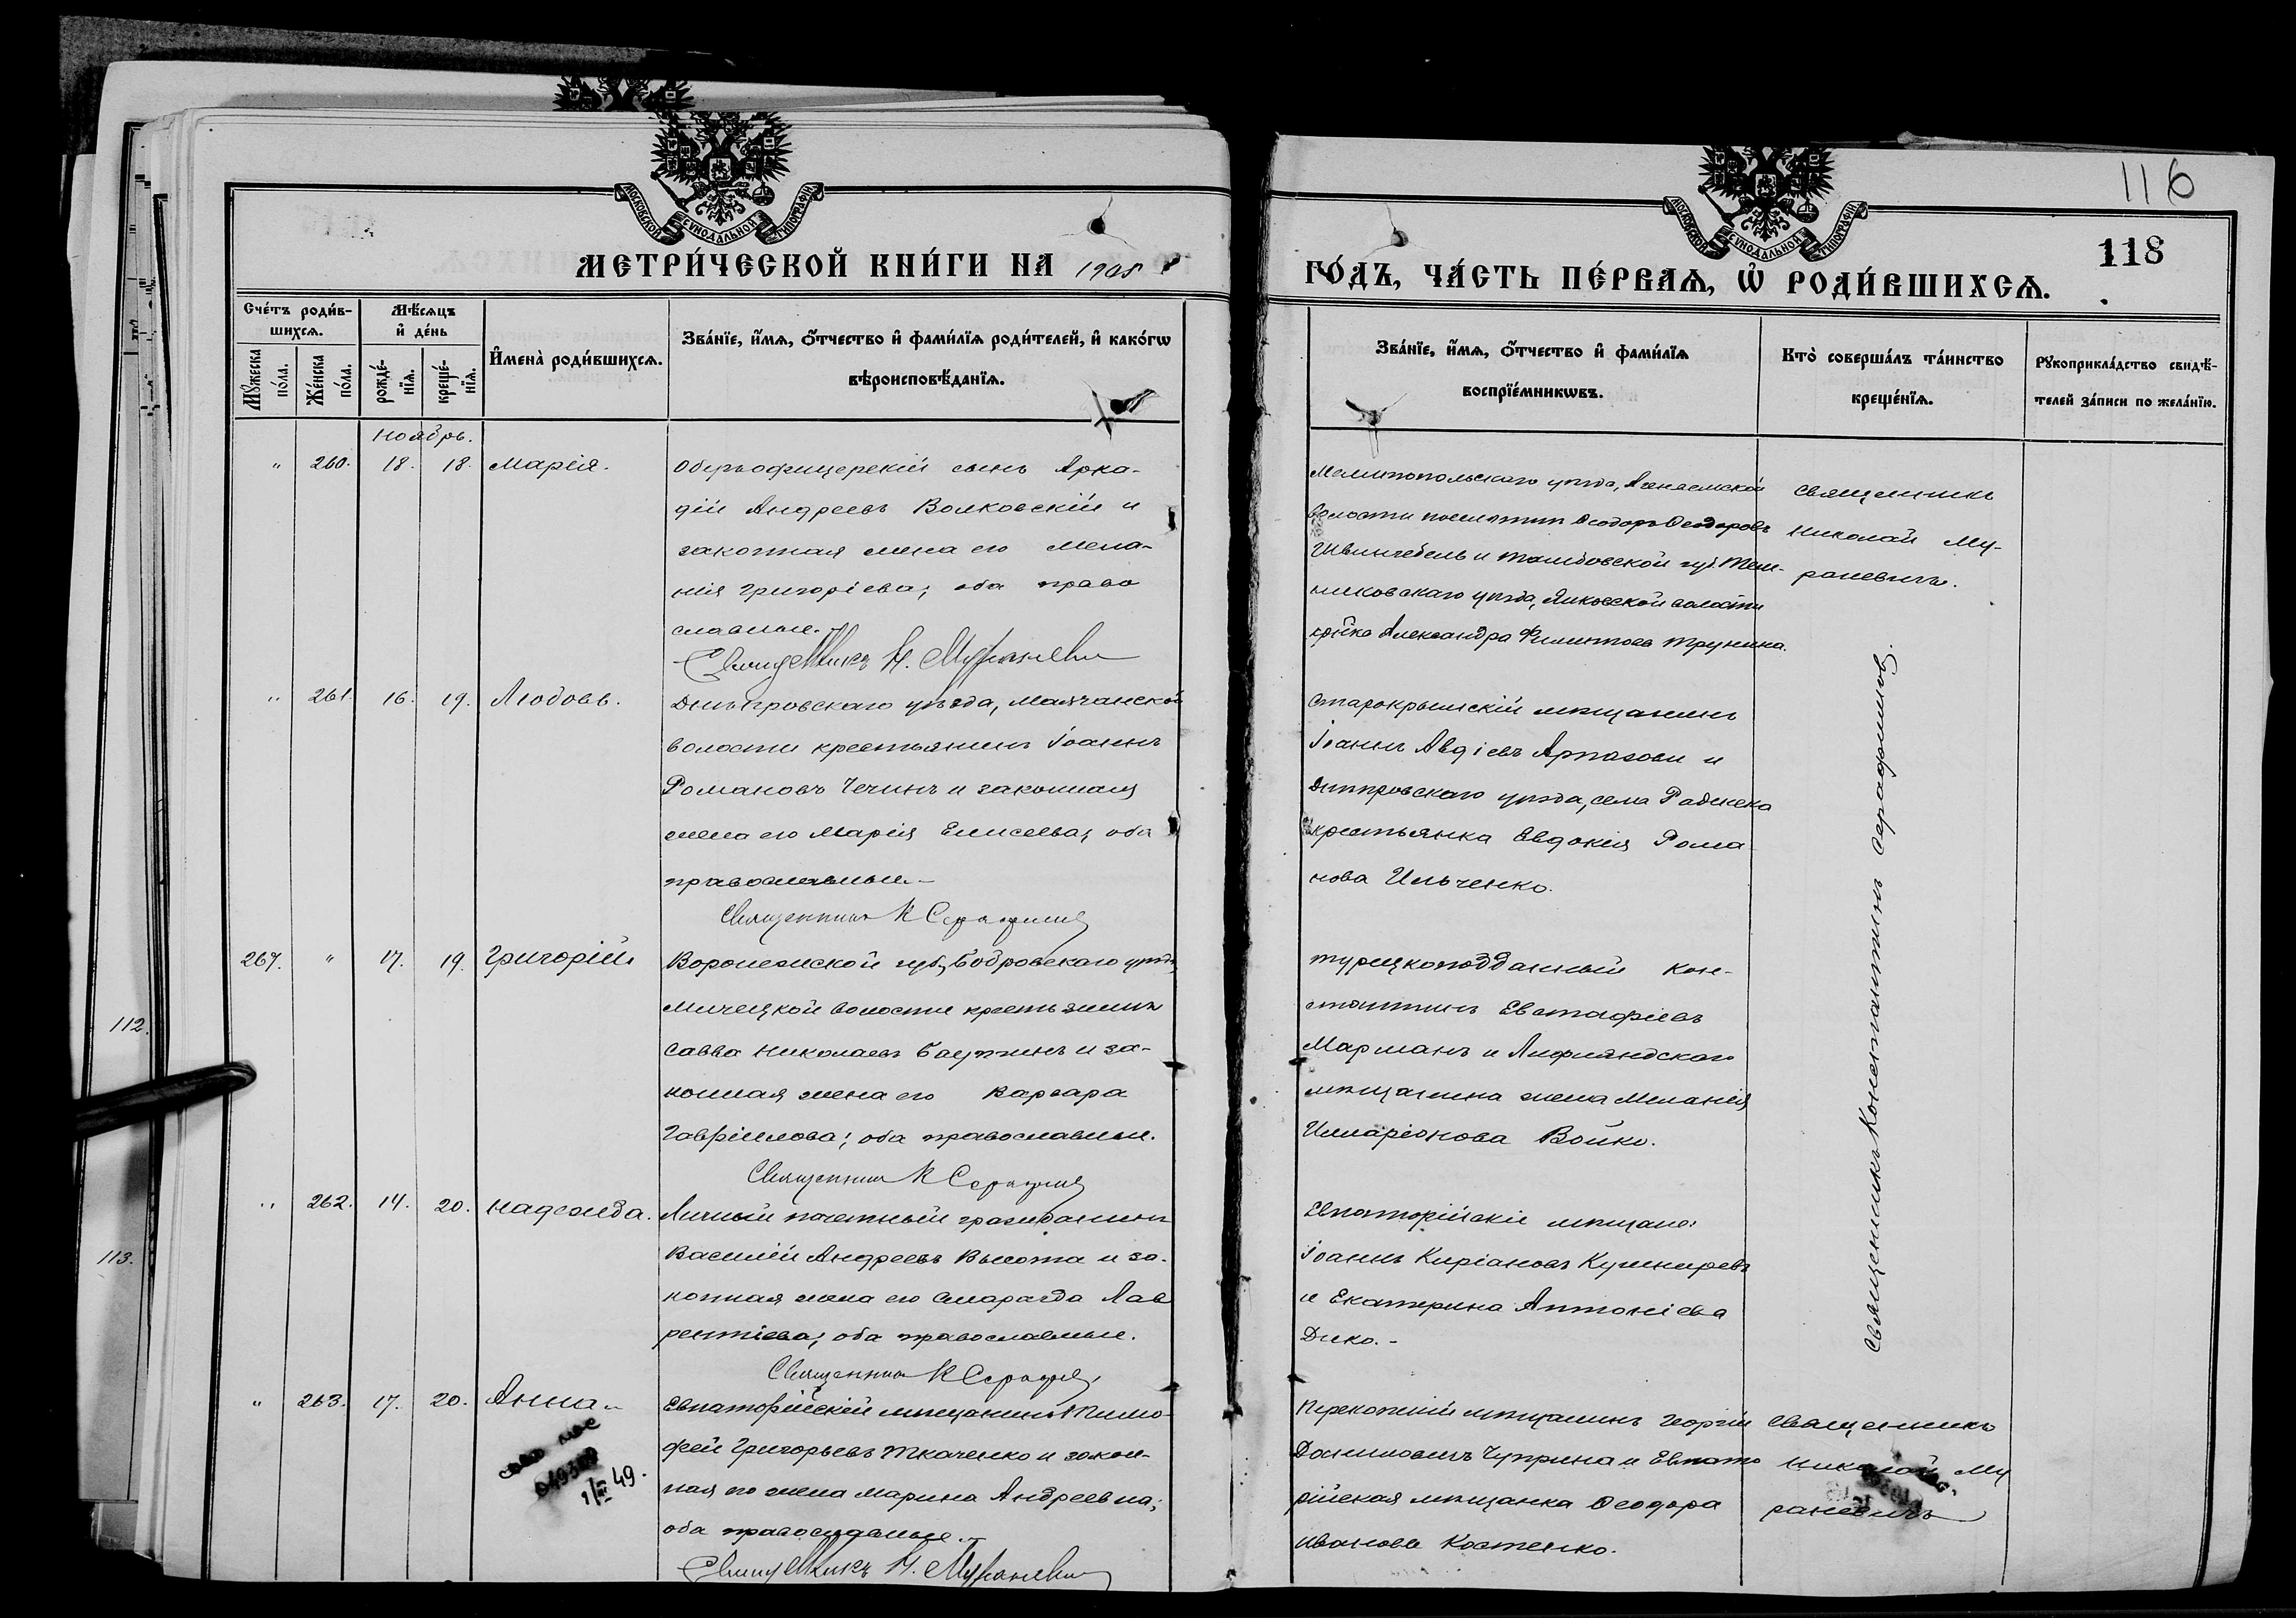 116
118
МОСКОВСКОЙ СУНОДАЛЬНОЙ ТИПОГРАФІИ
МОСКОВСКОЙ СУНОДАЛЬНОЙ ТИПОГРАФІИ
МЕТРИ́ЧЕСКОЙ КНИ́ГИ НА 1905
ГО́ДЪ, ЧА́СТЬ ПЕ́РВАѦ, Ѡ҆ РОДИ́ВШИХСѦ.
Сче́тъ роди́в-
шихсѧ.
Мꙋ́жеска
по́ла.
Же́нска
по́ла.
Мѣ́сѧцъ
и҆ де́нь
рожде́-
нїѧ.
креще́-
нїѧ.
И҆мена̀ роди́вшихсѧ.
Зва́нїе, и҆́мѧ, ѻ҆́тчество и҆ фами́лїѧ роди́телей, и҆ како́гѡ
вѣроисповѣ́данїѧ.
Зва́нїе, и҆́мѧ, ѻ҆́тчество и҆ фами́лїѧ
воспрїе́мникѡвъ.
Кто̀ соверша́лъ та́инство
креще́нїѧ.
Рꙋкоприкла́дство свидѣ́-
телей за́писи по жела́нїю.
Ноябрь.
" 260. 18. 18. Марія.
Оберъофицерскій сынъ Арка-
дій Андреевъ Волковскій и
законная жена его Мела-
нія Григоріева; оба право
славные.
Священникъ Н. Мураневич
Мелитопольскаго уѣзда,
волости поселянинъ Ѳеодоръ Ѳеодоровъ
и Тамбовской губ. Тем-
никовскаго уѣзда, волости
кр-нка Александра Филиппова Трунина.
Священникъ
Николай Му-
раневичъ.
" 261. 16. 19. Любовь.
Днѣпровскаго уѣзда, Маячанской
волости крестьянинъ Іоаннъ
Романовъ Чечинъ и законная
жена его Марія Елисеева; оба
православные.
Священник К Серафимов
Старокрымскій мѣщанинъ
Іоаннъ Авдіевъ и
Днѣпровскаго уѣзда, села Раденска
крестьянка Евдокія Рома
нова Ильченко.
Священникъ Константинъ Серафимовъ.
267. " 17. 19. Григорій
Воронежской губ., Бобровскаго уѣзда,
волости крестьянинъ
Савва Николаевъ и за-
конная жена его Варвара
Гавріилова; оба православные.
Священник К Серафимов
Турецкоподданный Кон-
стантинъ Евстафіевъ
Марманъ и Лифляндскаго
мѣщанина жена Меланія
Илларіонова Бойко.
112.
" 262. 14. 20. Надежда.
Личный почетный гражданинъ
Василій Андреевъ Высота и за-
конная жена его Смарагда Лав
рентіева; оба православные.
Священник К Серафимов
Евпаторійскіе мѣщане:
Іоаннъ Киріановъ Кушниревъ
и Екатерина Антоніева
Дико.-
113.
" 263. 17. 20. Анна
49.
Евпаторійскій мѣщанинъ Тимо-
фей Григорьевъ Ткаченко и закон-
ная его жена Марина Андреевна;
оба православные.
Священникъ Н. Мураневич
Перекопскій мѣщанинъ Георгій
Чуприна и Евпато
рійская мѣщанка Ѳеодора
Иванова Костенко.
Священникъ
Николай Му
раневичъ